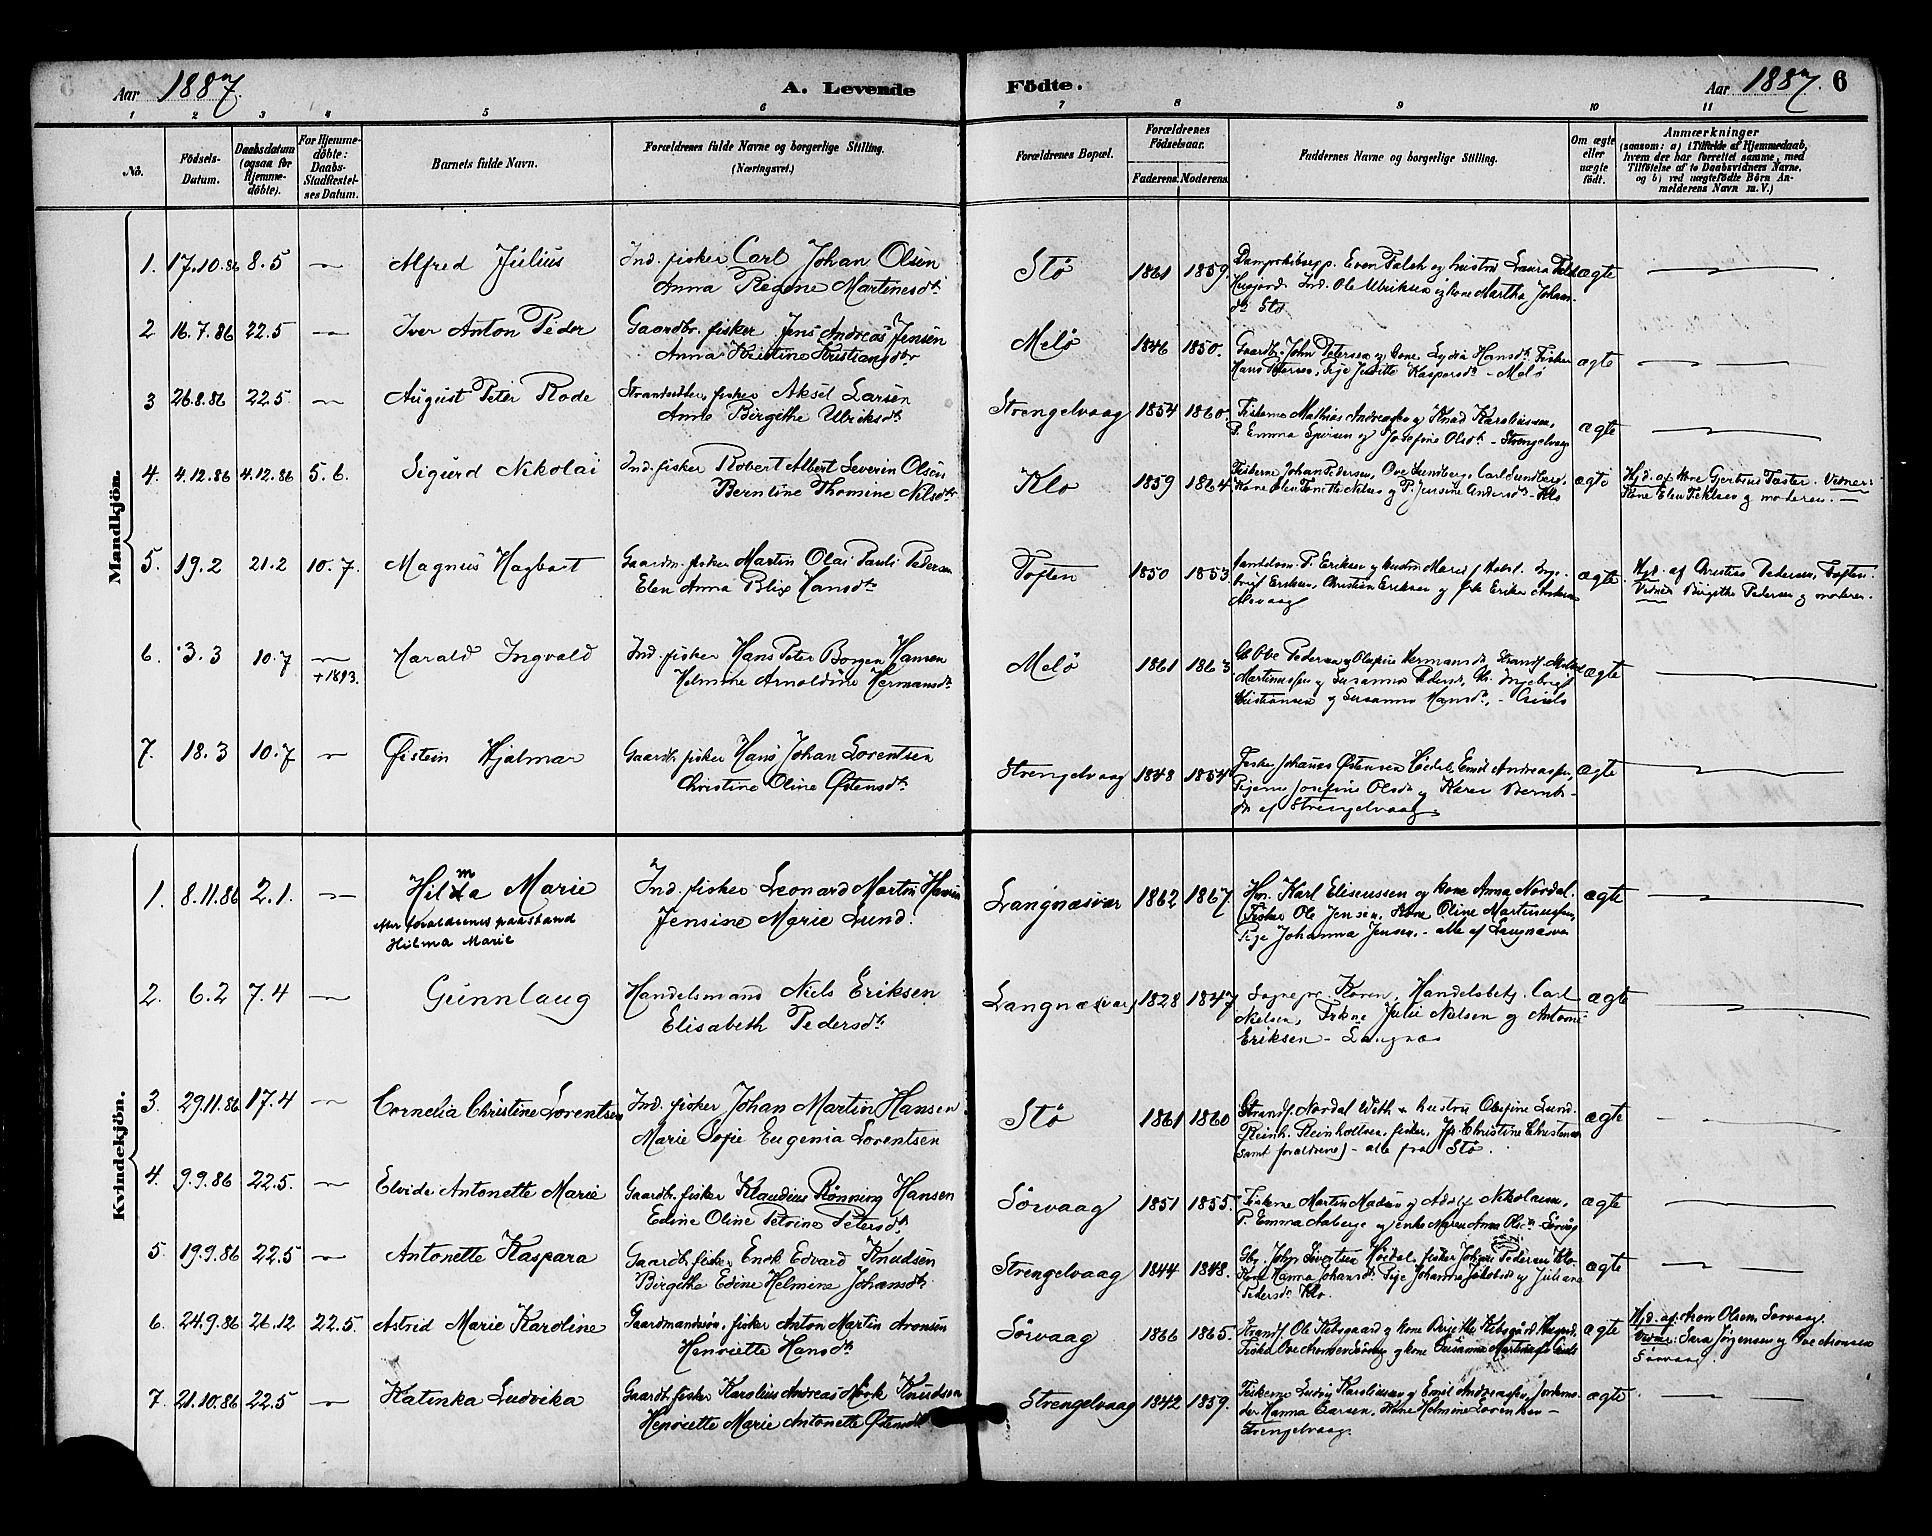 Aar 1887. A. Levende Födte. Aar 1887. 6
1 2 3 4 5 6 7 8 9 10 11
No. Födsels-Datum. Daabsdatum (ogsaa for Hjemmedöbte). For Hjemmedöbte: Daabs-Stadfæstelses Datum. Barnets fulde Navn. Forældrenes fulde Navne og borgerlige Stilling. (Næringsvei.) Forældrenes Bopæl. Forældrenes Födselsaar. Faderens. Moderens. Faddernes Navne og borgerlige Stilling. Om ægte eller uægte födt. Anmærkninger (saasom: a) i Tilfælde af Hjemmedaab, hvem der har forrettet samme, med Tilföielse af to Daabsvidners Navne, og b) ved uægtefödte Börn Anmelderens Navn m. V.)
Mandkjön.
1. 17.10.86 8.5 — Alfred Julius Ind. fisker Carl Johan Olsen Stö 1861 1859 Dampskibsexp. Even Falch og hustru Laura Falch ægte
Anna Regine Martinesdtr Ind. Ole Ulriksen og kone Martha Johans-
dtr Stö
2 16.7.86 22.5 — Iver Anton Peder Gaardbr. fisker Jens Andreas Jensen Melö 1846 1850. Gaardbr. John Peterssen og kone Lydia Hansdtr Fisker ægte
Anna Kristine Kristiansdtr Hans Petersen, Pige Kaspersdtr - Melö
3 26.8.86 22.5 — August Peter Rode Strandsidder, fisker Aksel Larsen Strengelvaag 1854 1860. Fiskerne Mathias Andreassen og Knud Karoliussen, ægte
Anne Birgithe Ulriksdtr P. Emma og Josefine Olsdtr - Strengelvaag
4. 4.12.86 4.12.86 5.6. Sigurd Nikolai Ind. fisker Robert Albert Severin Olsen Klo 1859 1864 Fiskerne Johan Pedersen, Ove Lundberg, Carl Lundberg, ægte Hjd. af Kone Gjertrud Vidner:
Berntine Thomine Nilsdtr Kone Elen og P. Jensine Andersdtr - Klo Kone Elen og moderen.
5. 19.2 21.2 10.7. Magnus Hagbart Gaardm. fisker Martin Olai Pauli Pedersen Toften 1850 1853 P. Eriksen og hustru ægte Hjd. af Christian Pedersen, Toften.
Elen Anna Blix Hansdtr Eriksen, Christian Eriksen og Vidner Birgithe Pedersen og moderen.
Alsvaag
6. 3.3 10.7 — Harald Ingvald Ind. fisker Hans Peter Borgen Hansen Melö 1861 1863 Gb Ove Pedersen og Olufine Hermansdtr, ægte
+1893. Helmine Arnoldine Hermansdtr Martinussen og Susanna Pedersdtr, Ingebrigt
Kristiansen og Susanna Hansdtr,
7. 18.3 10.7 — Øistein Hjalmar Gaardb. fisker Hans Johan Lorentsen Strengelvaag 1848 1854 Fisker Johannes Østensen Hödal, Emil Andreassen, ægte
Christine Oline Østensdtr Pigerne Josefine Olsdtr og Karen Bernts-
dtr af Strengelvaag.
Kvindekjön.
1. 8.11.86 2.1. — Hilma Marie Ind. fisker Leonard Martin Hansen Langnæsvær 1862 1867. Karl Eliseussen og kone Anna Nordal. ægte
efter forældrenes paastand Jensine Marie Lund. Fisker Ole Jensen, Kone Oline Martinussen,
Hilma Marie Pige Johanna Jensen, - alle af Langnæsvær
2. 6.2 7.4 — Gunnlaug Handelsmand Niels Eriksen Langnæs(vær) 1828 1847 Sognepr. Koren, Handelsbetj. Carl ægte
Elisabeth Pedersdtr Nielsen, Frkne Julie Nielsen og Antonie
Eriksen - Langnæs
3. 29.11.86 17.4 — Cornelia Christine Lorentsen Ind. fisker Johan Martin Hansen Stö 1861 1860 Strandf. Nordal Weth + hustru Olufine Lund. ægte
Marie Sofie Eugenia Lorentsen Reinh. Reinholtsen, fisker, Jfr Christine Christensen
samt forældrene) - alle fra Stö.
4. 9.9.86 22.5. — Elvide Antonette Marie Gaardb. fisker Klaudius Rönning Hansen Sörvaag 1851 1855. Fiskerne Martin Madsen og Adolf Nikolaisen, ægte
Edine Oline Petrine Petersdtr P. Emma Aaberge og enke Maren Anna Olsdtr - Sörvåg
5. 19.9.86 22.5 — Antonette Kaspara Gaardb. fisker Enok Edvard Knudsen Strengelvaag 1844 1848. Gbr. John Sivertsen Höidal, fisker Johan Pedersen Klo. ægte
Birgithe Edine Helmine Johansdtr Kone Hanna Johansdtr, Pige Johanna Jakobsd og Juliane
Pedersdtr Klo.
6. 24.9.86 26.12 22.5. Astrid Marie Karoline Gaardmandssön, fisker Anton Martin Aronsen Sörvaag 1866 1865. Strandf. Ole Kibsgaard og kone Birgitte Kibsgård ægte Hjd. af: Aron Olsen, Sörvaag.
Henriette Hansdtr Fisker Ove Aronsen Sörvåg og kone Susanna Vidner: Sara Jörgensen og Ove Aronsen
Sörvaag.
7. 21.10.86 22.5 — Katinka Ludvika Gaardb. fisker Karolius Andreas Mörk Knudsen Strengelvaag 1842 1859. Fiskerne Ludvig Karoliussen og Emil Andreassen, Jordemo- ægte
Henriette Marie Antonette Østensdtr der Hanna Larsen, Kone Helmine Lorentsen -
Strengelvaag.